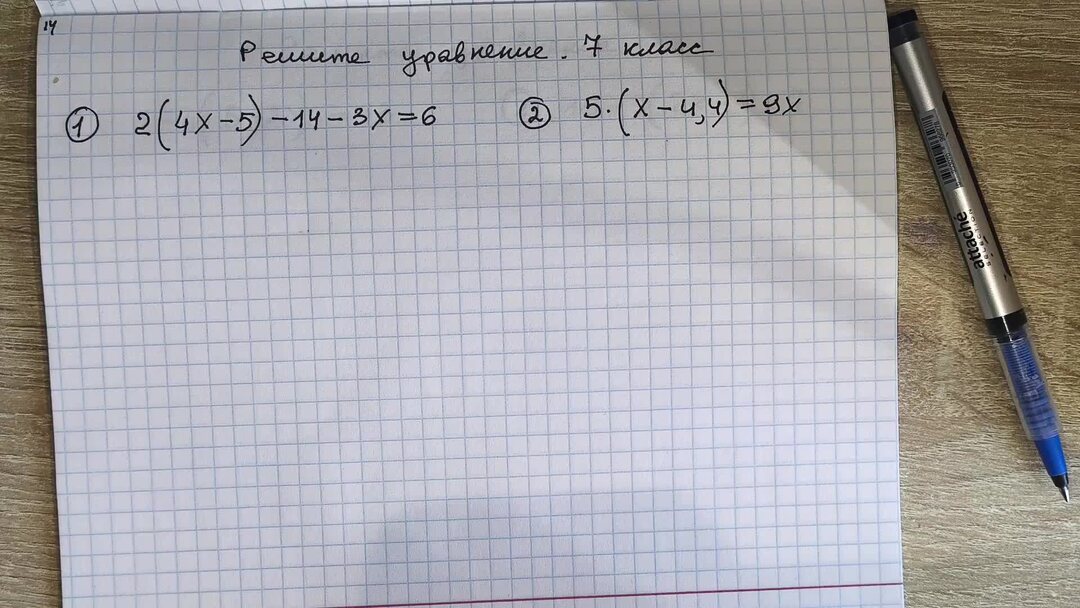 14
Решите уравнение. 7 класс
① 2(4x-5)-14-3x=6
② 5·(x-4,4)=9x
attaché